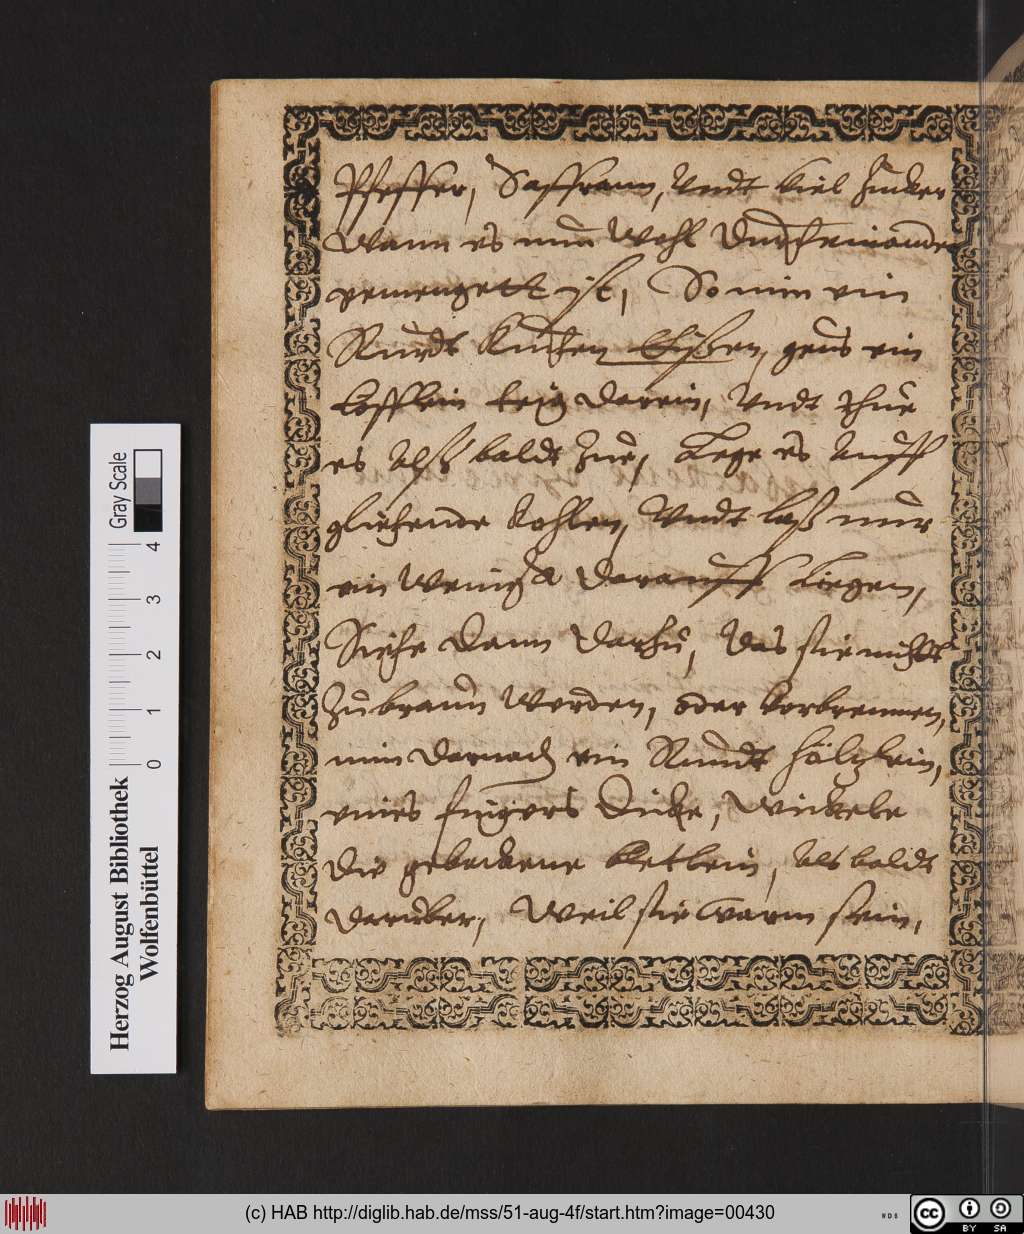 Pfeffer, Saffrann, Vndt viel Zucker
Wann es nun Wohl Durcheinander
gemengett ist, So nim ein
Rundt Kuchen Eißen, geus ein
Löfflein teig darein, Vndt thue
es Alß baldt Zue, Lege es Auff
gliehende Kohlen, Vndt laß nur
ein Wenigk darauff liegen,
Siehe dann darzu, das sie nicht
Zu braun Werden, oder verbrennen,
nim darnach ein Rundt höltzlein,
eines fingers Dicke, Wickele
die gebackene bletlein, Als baldt
darüber, Weil sie warm sein,
Gray Scale
0 1 2 3 4
Herzog August Bibliothek
Wolfenbüttel
(c) HAB http://diglib.hab.de/mss/51-aug-4f/start.htm?image=00430
WDB
cc BY SA